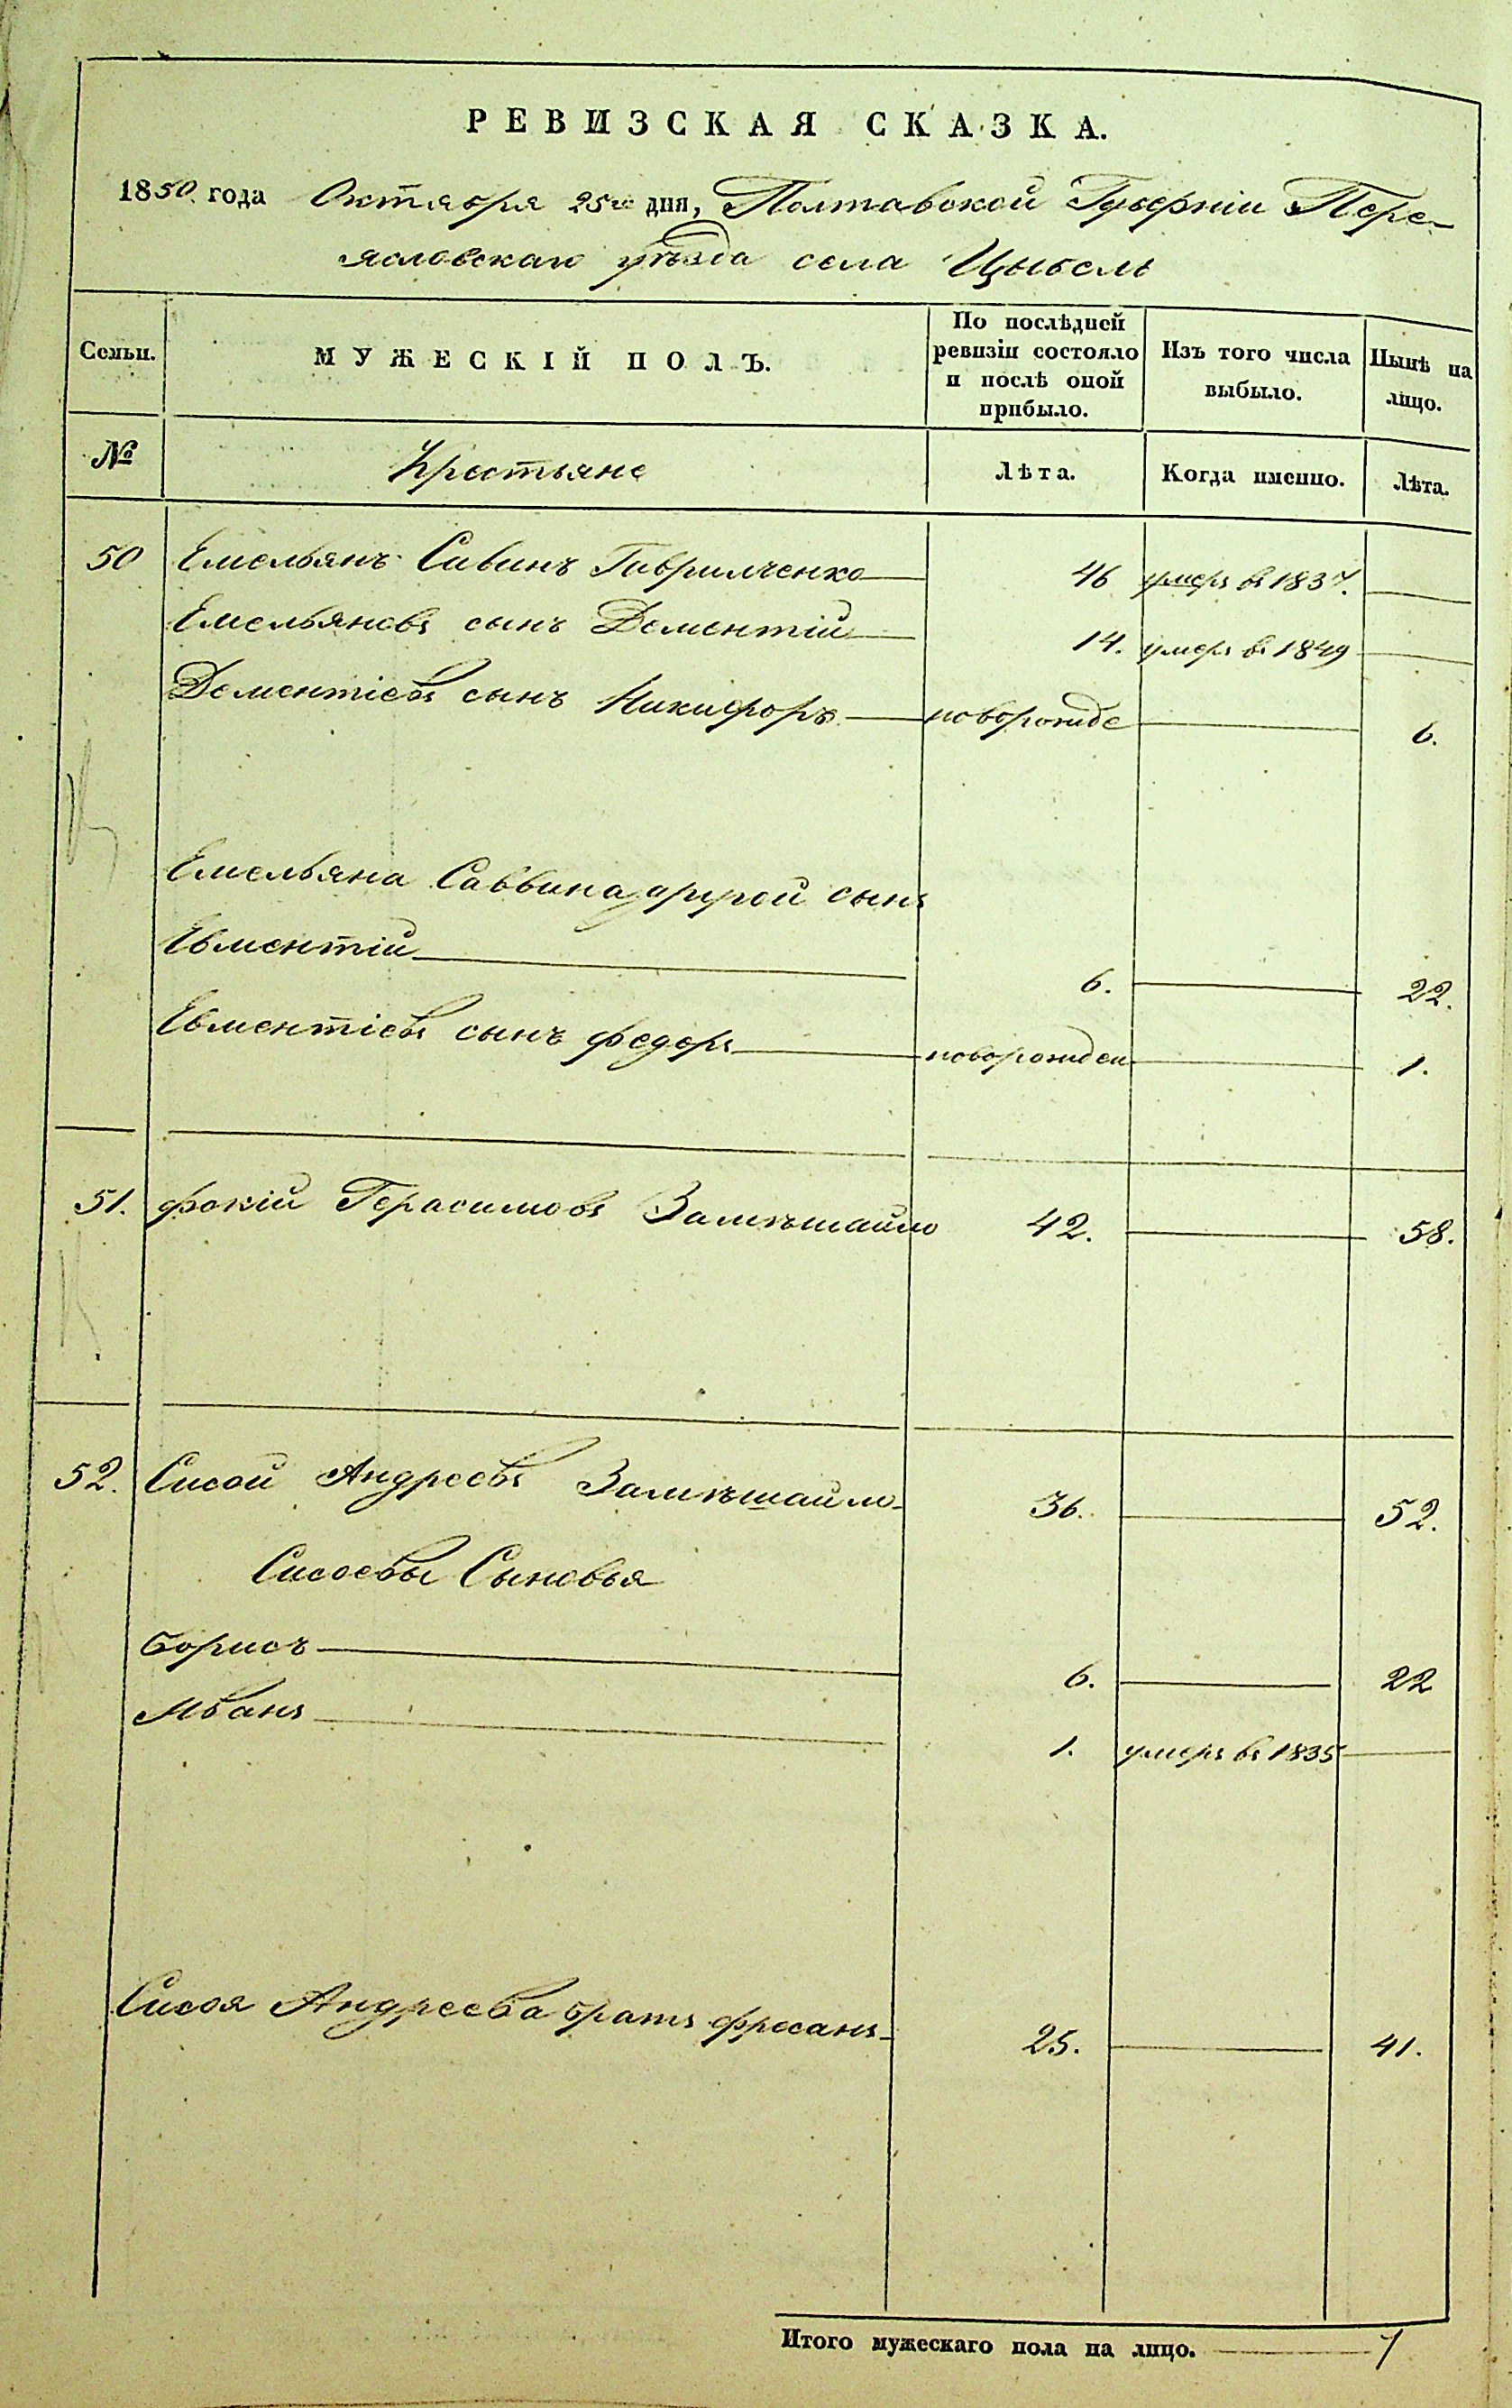 РЕВИЗСКАЯ СКАЗКА.
1850. года Октября 25го дня, Полтавской Губерніи Пере-
ясловскаго уѣзда села Цыбель
Семьи. МУЖЕСКІЙ ПОЛЪ. По послѣдней ревизіи состояло и послѣ оной прибыло. Изъ того числа выбыло. Нынѣ на лицо.
№ Крестьяне Лѣта. Когда именно. Лѣта.
50 Емельянъ Савинъ Гаврилченко 46 умеръ въ 1837.
Емельяновъ сынъ Дементій 14. умеръ въ 1849
Дементіевъ сынъ Никифоръ новорожде 6.
Емельяна Саввина другой сынъ
Евментій 6. 22.
Евментіевъ сынъ Федоръ новорожден 1.
51. Фокій Герасимовъ Замѣшайло 42. 58.
52. Сисой Андреевъ Замѣшайло 36. 52.
Сисоевы Сыновья
Борисъ 6. 22
Иванъ 1. умеръ въ 1835
Сисоя Андреева братъ 25. 41.
Итого мужескаго пола на лицо. 7